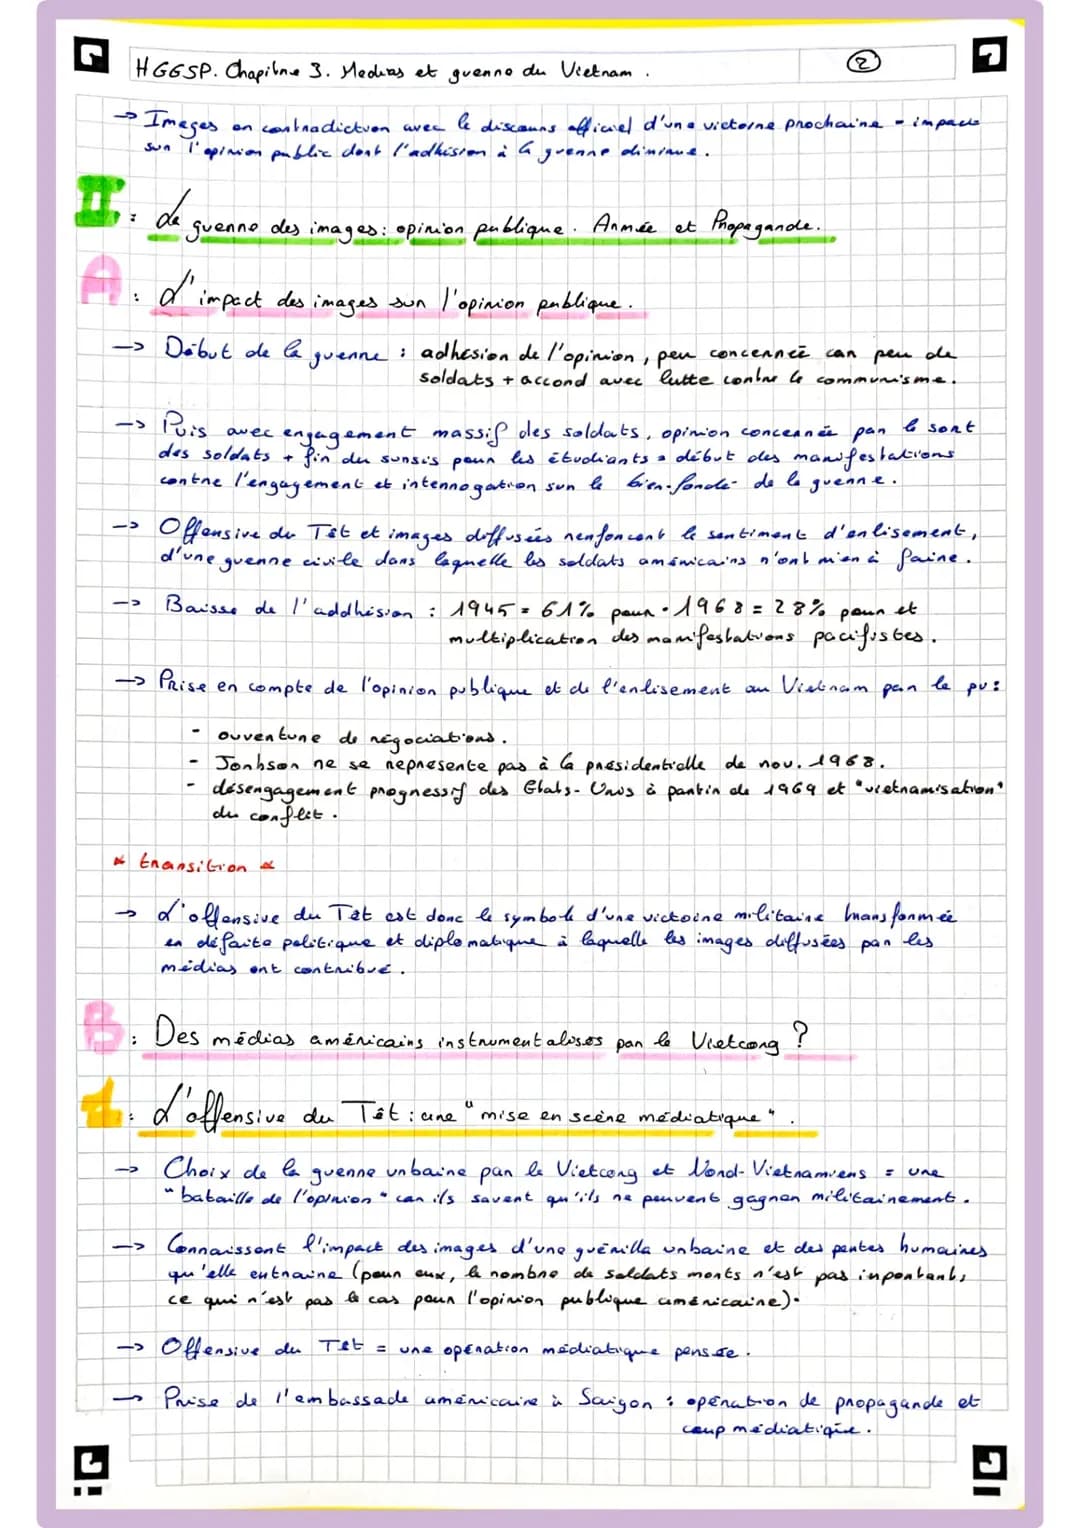 HGGSP. Chapitre 3. Medias et guerre du Vietnam.
2
→ Images en contradiction avec le discours officiel d'une victoire prochaine = impacte
sur l'opinion public dont l'adhésion à la guerre diminue.
II : La guerre des images : opinion publique. Armée et Propagande.
A : L'impact des images sur l'opinion publique.
→ Début de la guerre : adhésion de l'opinion, peu concernée car peu de
soldats + accord avec lutte contre le communisme.
→ Puis avec engagement massif des soldats, opinion concernée par le sort
des soldats + fin du sursis pour les étudiants = début des manifestations
contre l'engagement et interrogation sur le bien-fondé de la guerre.
→ Offensive du Têt et images diffusées renforcent le sentiment d'enlisement,
d'une guerre civile dans laquelle les soldats américains n'ont rien à faire.
→ Baisse de l'addhésion : 1945 = 61% pour • 1968 = 28% pour et
multiplication des manifestations pacifistes.
→ Prise en compte de l'opinion publique et de l'enlisement au Vietnam par le pv :
- ouverture de négociations.
- Jonhson ne se représente pas à la présidentielle de nov. 1968.
- désengagement progressif des Etats-Unis à partir de 1969 et "vietnamisation"
du conflit.
* transition *
→ L'offensive du Têt est donc le symbole d'une victoire militaire transformée
en défaite politique et diplomatique à laquelle les images diffusées par les
médias ont contribué.
B : Des médias américains instrumentalisés par le Vietcong ?
1 : L'offensive du Têt : une "mise en scène médiatique".
→ Choix de la guerre urbaine par le Vietcong et Nord-Vietnamiens = une
"bataille de l'opinion" car ils savent qu'ils ne peuvent gagner militairement.
→ Connaissent l'impact des images d'une guérilla urbaine et des pertes humaines
qu'elle entraine (pour eux, le nombre de soldats morts n'est pas inportant,
ce qui n'est pas le cas pour l'opinion publique américaine).
→ Offensive du Têt = une opération médiatique pensée.
→ Prise de l'embassade américaine à Saigon : opération de propagande et
coup médiatique.